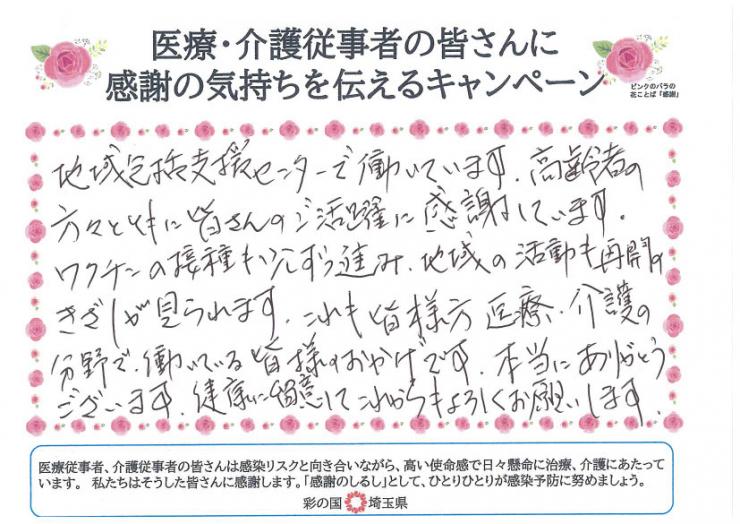 医療・介護従事者の皆さんに
感謝の気持ちを伝えるキャンペーン
ピンクのバラの
花ことば「感謝」
地域包括支援センターで働いています。高齢者の
方々とともに皆さんのご活躍に感謝しています。
ワクチンの接種も少しずつ進み、地域の活動も再開の
きざしが見られます。これも皆様方医療・介護の
分野で、働いている皆様のおかげです。本当にありがとう
ございます。健康に留意してこれからもよろしくお願いします。
医療従事者、介護従事者の皆さんは感染リスクと向き合いながら、高い使命感で日々懸命に治療、介護にあたって
います。 私たちはそうした皆さんに感謝します。「感謝のしるし」として、ひとりひとりが感染予防に努めましょう。
彩の国 埼玉県